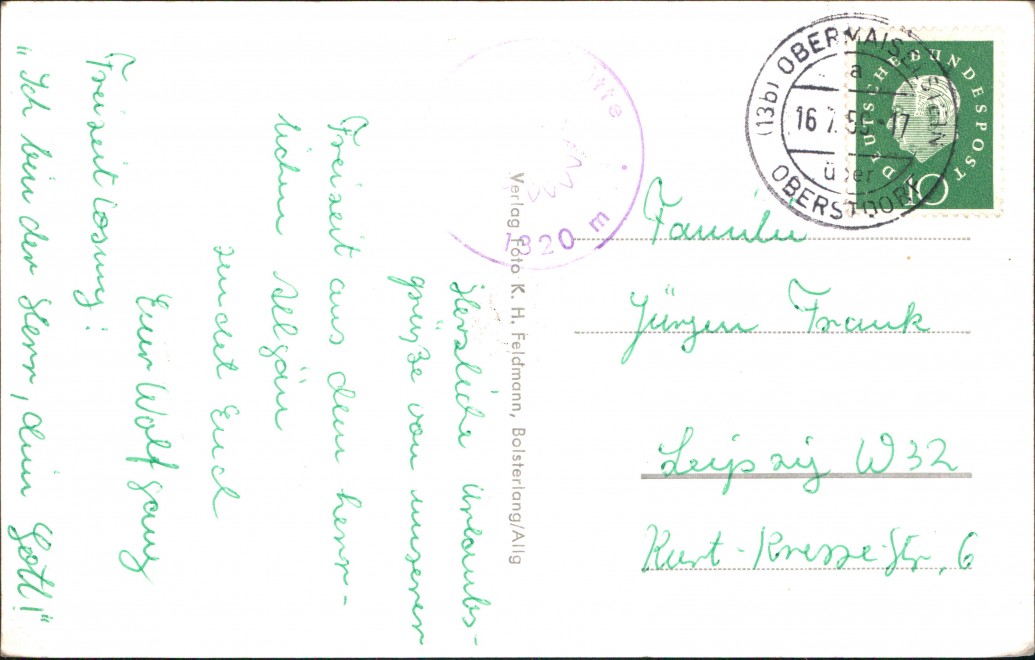 Herzliche Urlaubs-
grüße von unserer
Freizeit aus dem herr-
lichen Allgäu
sendet Euch
Euer Wolfgang
Freizeitlosung:
"Ich bin der Herr, dein Gott!"
Verlag Foto K. H. Feldmann, Bolsterlang/Allg
1820 m
(13b) OBERMAISELSTEIN
a
16.7.59-17
über
OBERSTDORF
DEUTSCHE BUNDESPOST
10
Familie
Jürgen Frank
Leipzig W32
Kurt-Kresse-Str. 6